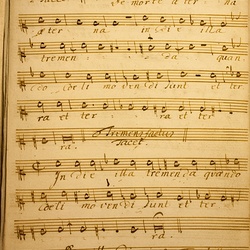 Tacet. de morte æter na
æter na in die illa
tremen da quan
do cœli mo ven di sunt et ter
ra et ter ra et ter
ra. Tremens factus
Tacet.
In die illa tremenda quando
Cœli mo ven di sunt et ter
ra.